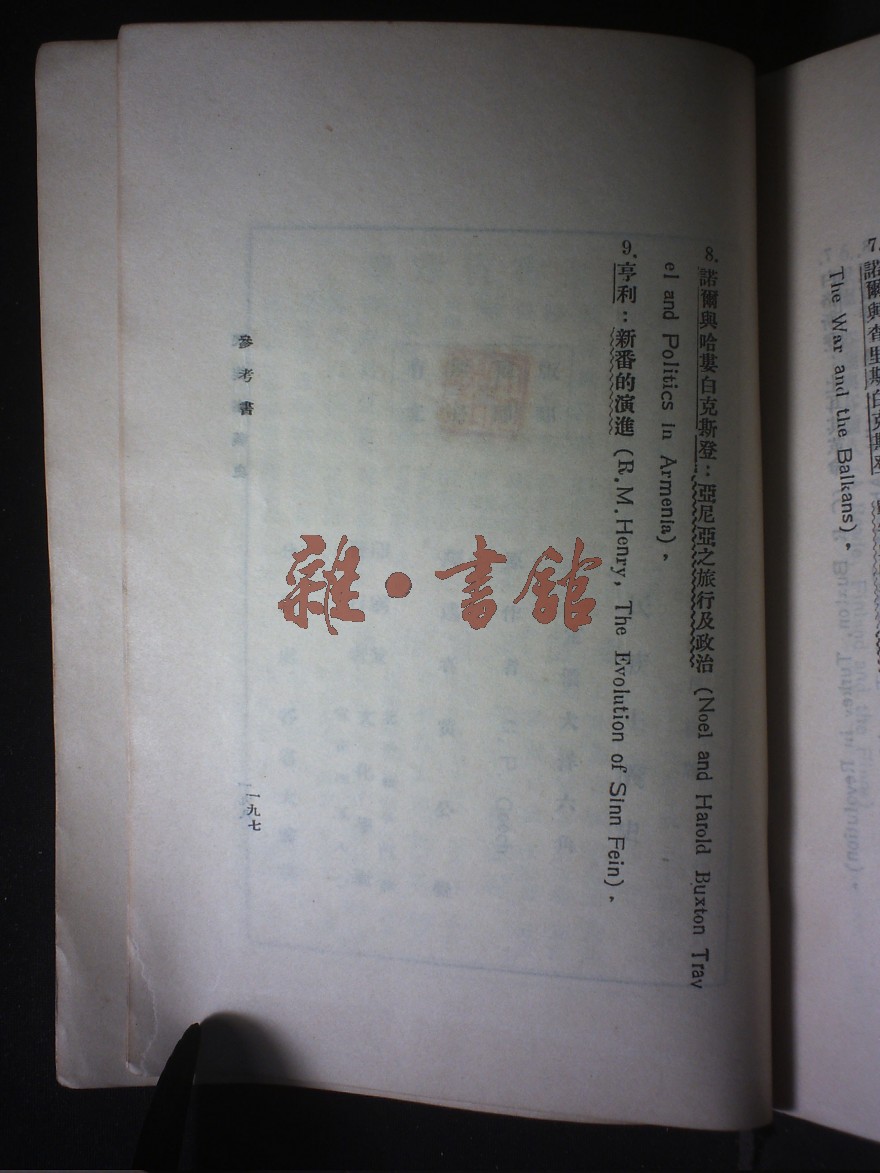 7.諾爾與查里斯白克斯登
The War and the Balkans).
8.諾爾與哈婁白克斯登：亞尼亞之旅行及政治 (Noel and Harold Buxton Trav
el and Politics in Armenia).
9.亨利：新番的演進 (R.M.Henry, The Evolution of Sinn Fein).
參考書
一九七
雜·書館